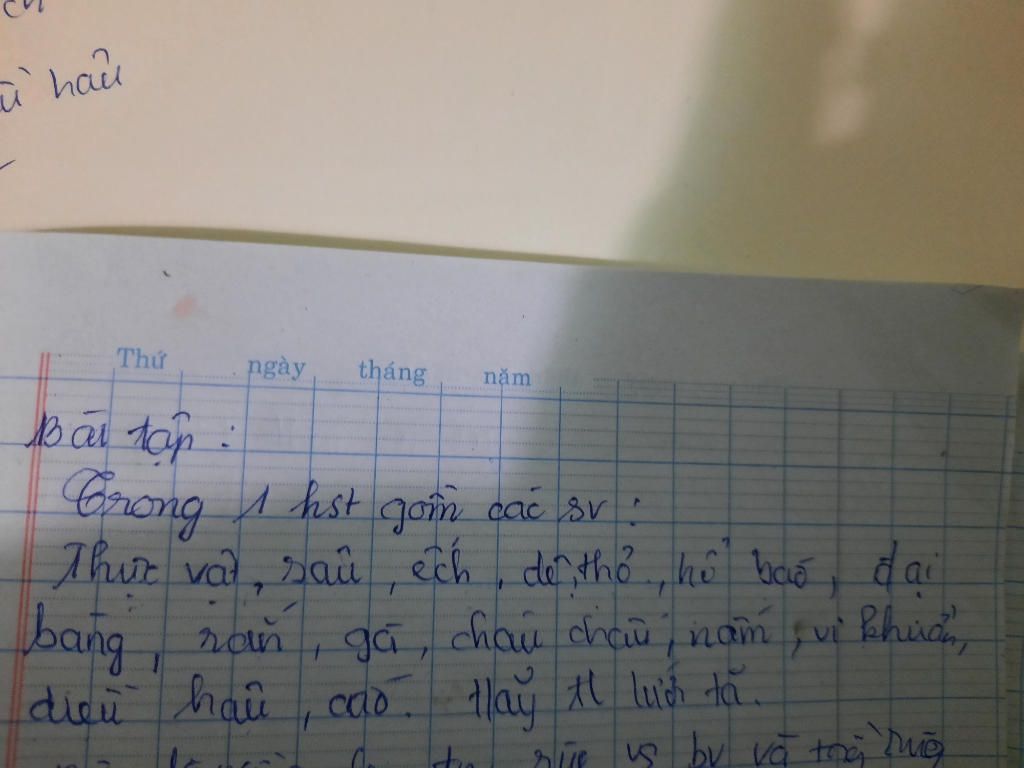 ch
ù hâu
Thứ ngày tháng năm
Bài tập :
Trong 1 hst gồm các sv :
Thực vật, sâu, ếch, dê, thỏ, hổ báo, đại
bàng, rắn, gà, châu chấu, nấm, vi khuẩn,
diều hâu, cáo. Hãy tl lưới tă.
rừng vs bv và trồng rừng